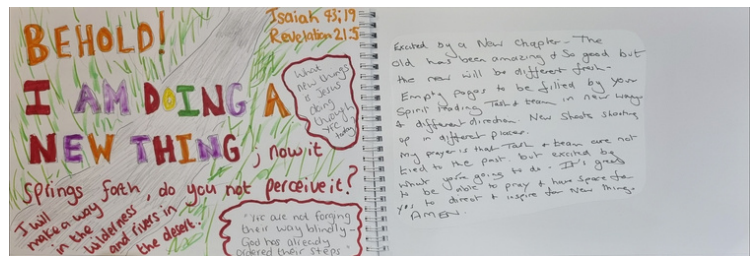 BEHOLD!
Isaiah 43:19
Revelation 21:5
I AM DOING A
NEW THING; now it
springs forth, do you not perceive it?
I will
make a way
in the
wilderness
and rivers in
the desert.
What
new things
is Jesus
doing
through
YFC
today?
"YFC are not forging
their way blindly -
God has already
ordered their steps"
Excited by a New Chapter - The
old has been amazing & so good but
the new will be different fresh -
Empty pages to be filled by your
Spirit leading Task & team in new ways
& different direction. New Shoots
up in different places.
My prayer is that Task & team are not
tied to the past. but excited by
what you're going to do. It's great
to be able to pray & have space for
you to direct & inspire for New things.
AMEN.